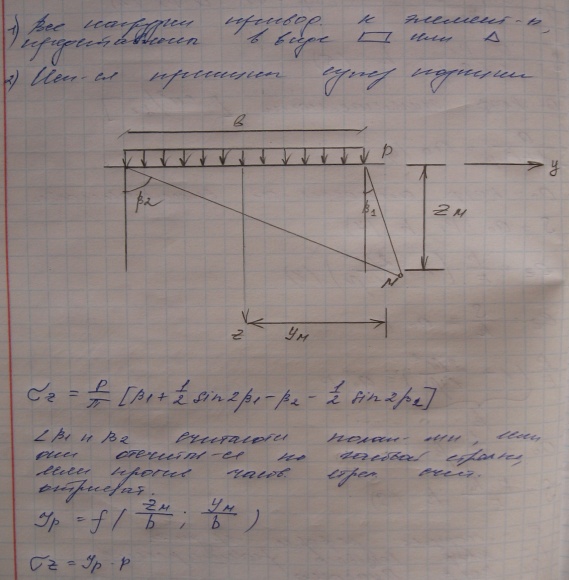 1) Все нагрузки привод. к элемент-м,
представлены в виде ▭ или △
2) Исп-ся принцип суперпозиции
в
P
y
β2
β1
zм
M
z
yм
σz = P/π [β1 + 1/2 sin2β1 - β2 - 1/2 sin2β2]
∠β1 и β2 считаются полож-ми, если
они отсчиты-ся по часовой стрелке,
если против часов. стрел. счит.
отрицат.
Yp = f ( zм/b ; yм/b )
σz = Yp · p